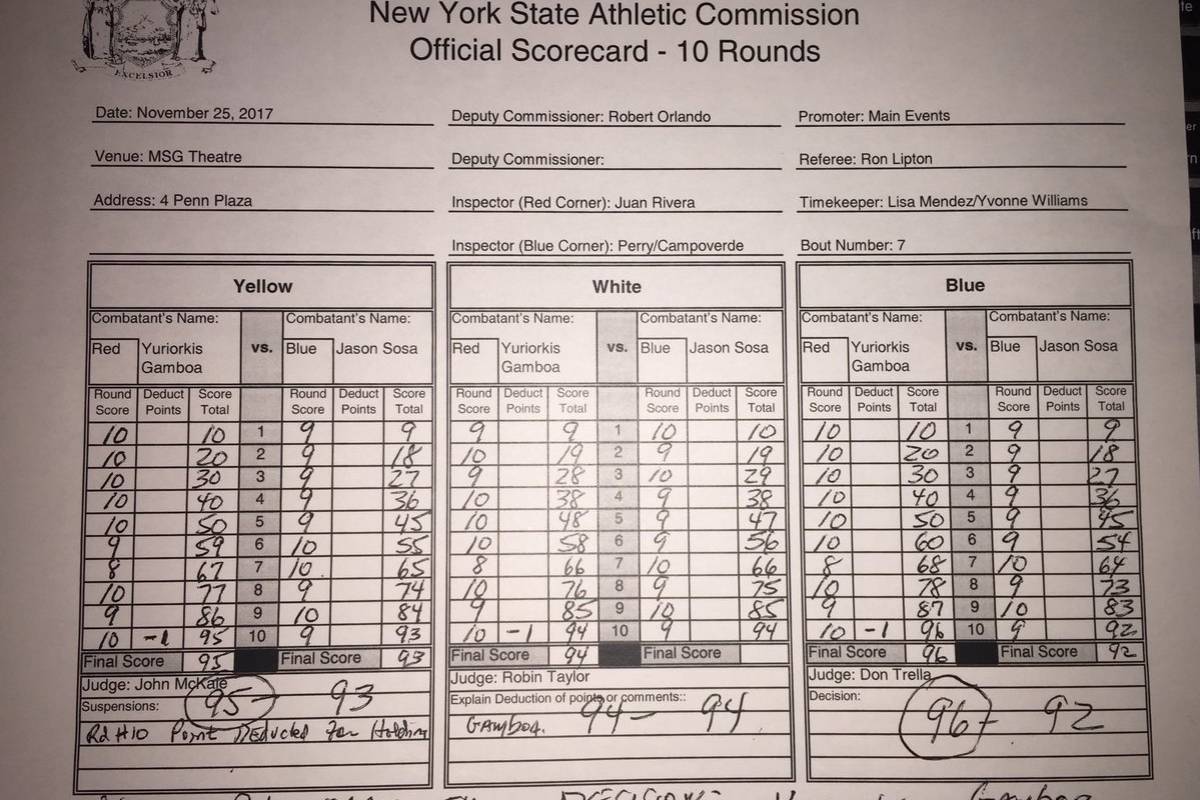 EXCELSIOR
New York State Athletic Commission
Official Scorecard - 10 Rounds
Date: November 25, 2017 Deputy Commissioner: Robert Orlando Promoter: Main Events
Venue: MSG Theatre Deputy Commissioner: Referee: Ron Lipton
Address: 4 Penn Plaza Inspector (Red Corner): Juan Rivera Timekeeper: Lisa Mendez/Yvonne Williams
Inspector (Blue Corner): Perry/Campoverde Bout Number: 7
Yellow White Blue
Combatant's Name: Combatant's Name: Combatant's Name: Combatant's Name: Combatant's Name: Combatant's Name:
Red Yuriorkis vs. Blue Jason Sosa Red Yuriorkis vs. Blue Jason Sosa Red Yuriorkis vs. Blue Jason Sosa
Gamboa Gamboa Gamboa
Round Deduct Score Round Deduct Score Round Deduct Score Round Deduct Score Round Deduct Score Round Deduct Score
Score Points Total Score Points Total Score Points Total Score Points Total Score Points Total Score Points Total
10 10 1 9 9 9 9 1 10 10 10 10 1 9 9
10 20 2 9 18 10 19 2 9 19 10 20 2 9 18
10 30 3 9 27 9 28 3 10 29 10 30 3 9 27
10 40 4 9 36 10 38 4 9 38 10 40 4 9 36
10 50 5 9 45 10 48 5 9 47 10 50 5 9 45
9 59 6 10 55 10 58 6 9 56 10 60 6 9 54
8 67 7 10 65 8 66 7 10 66 8 68 7 10 64
10 77 8 9 74 10 76 8 9 75 10 78 8 9 73
9 86 9 10 84 9 85 9 10 85 9 87 9 10 83
10 -1 95 10 9 93 10 -1 94 10 9 94 10 -1 96 10 9 92
Final Score 95 Final Score 93 Final Score 94 Final Score Final Score 96 Final Score 92
Judge: John McKaie Judge: Robin Taylor Judge: Don Trella
Suspensions: 95- 93 Explain Deduction of points or comments:: 94- 94 Decision: 96- 92
Rd #10 Point Deducted For Holding GAmboa.
DECISION Gamboa